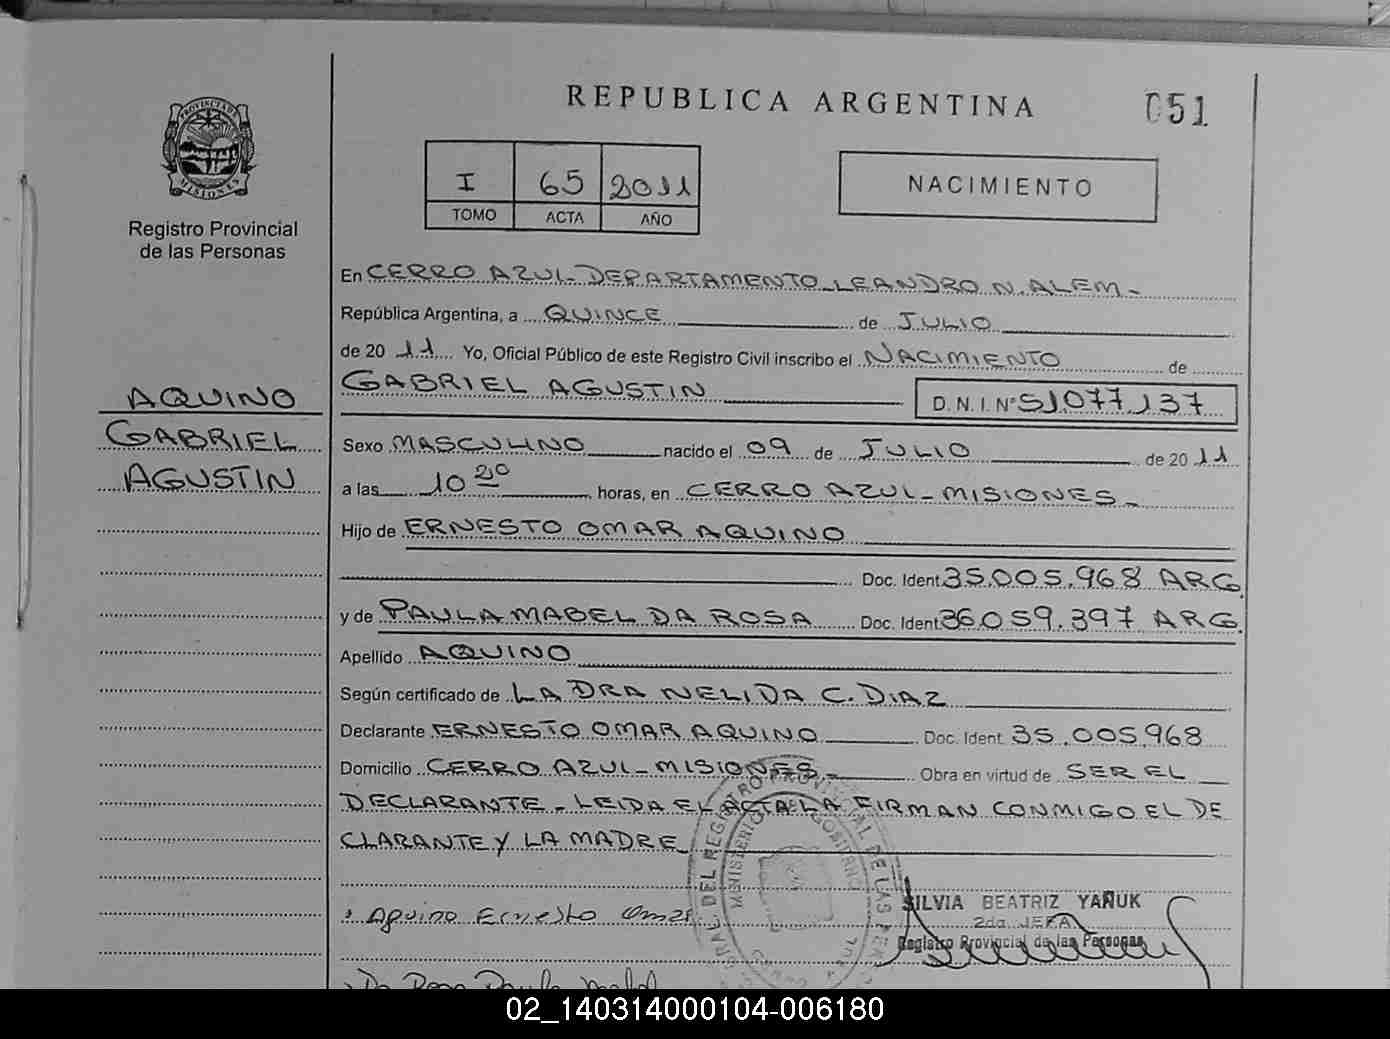 REPUBLICA ARGENTINA
051
PROVINCIA DE
MISIONES
Registro Provincial
de las Personas
I 65 2011
TOMO ACTA AÑO
NACIMIENTO
En CERRO AZUL - DEPARTAMENTO LEANDRO N. ALEM -
República Argentina, a QUINCE de JULIO
de 20 11 Yo, Oficial Público de este Registro Civil inscribo el NACIMIENTO de
GABRIEL AGUSTIN D.N.I. Nº 51.077.137
AQUINO
GABRIEL
AGUSTIN
Sexo MASCULINO nacido el 09 de JULIO de 20 11
a las 10 20 horas, en CERRO AZUL - MISIONES -
Hijo de ERNESTO OMAR AQUINO
Doc. Ident. 35.005.968 ARG.
y de PAULA MABEL DA ROSA Doc. Ident. 36.059.397 ARG.
Apellido AQUINO
Según certificado de LA DRA NELIDA C. DIAZ
Declarante ERNESTO OMAR AQUINO Doc. Ident. 35.005.968
Domicilio CERRO AZUL - MISIONES - Obra en virtud de SER EL
DECLARANTE - LEIDA EL ACTA LA FIRMAN CONMIGO EL DE
CLARANTE Y LA MADRE
Aquino Ernesto Omar
SILVIA BEATRIZ YAÑUK
2da. JEFA
Registro Provincial de las Personas
Da Rosa Paula Mabel
02_140314000104-006180